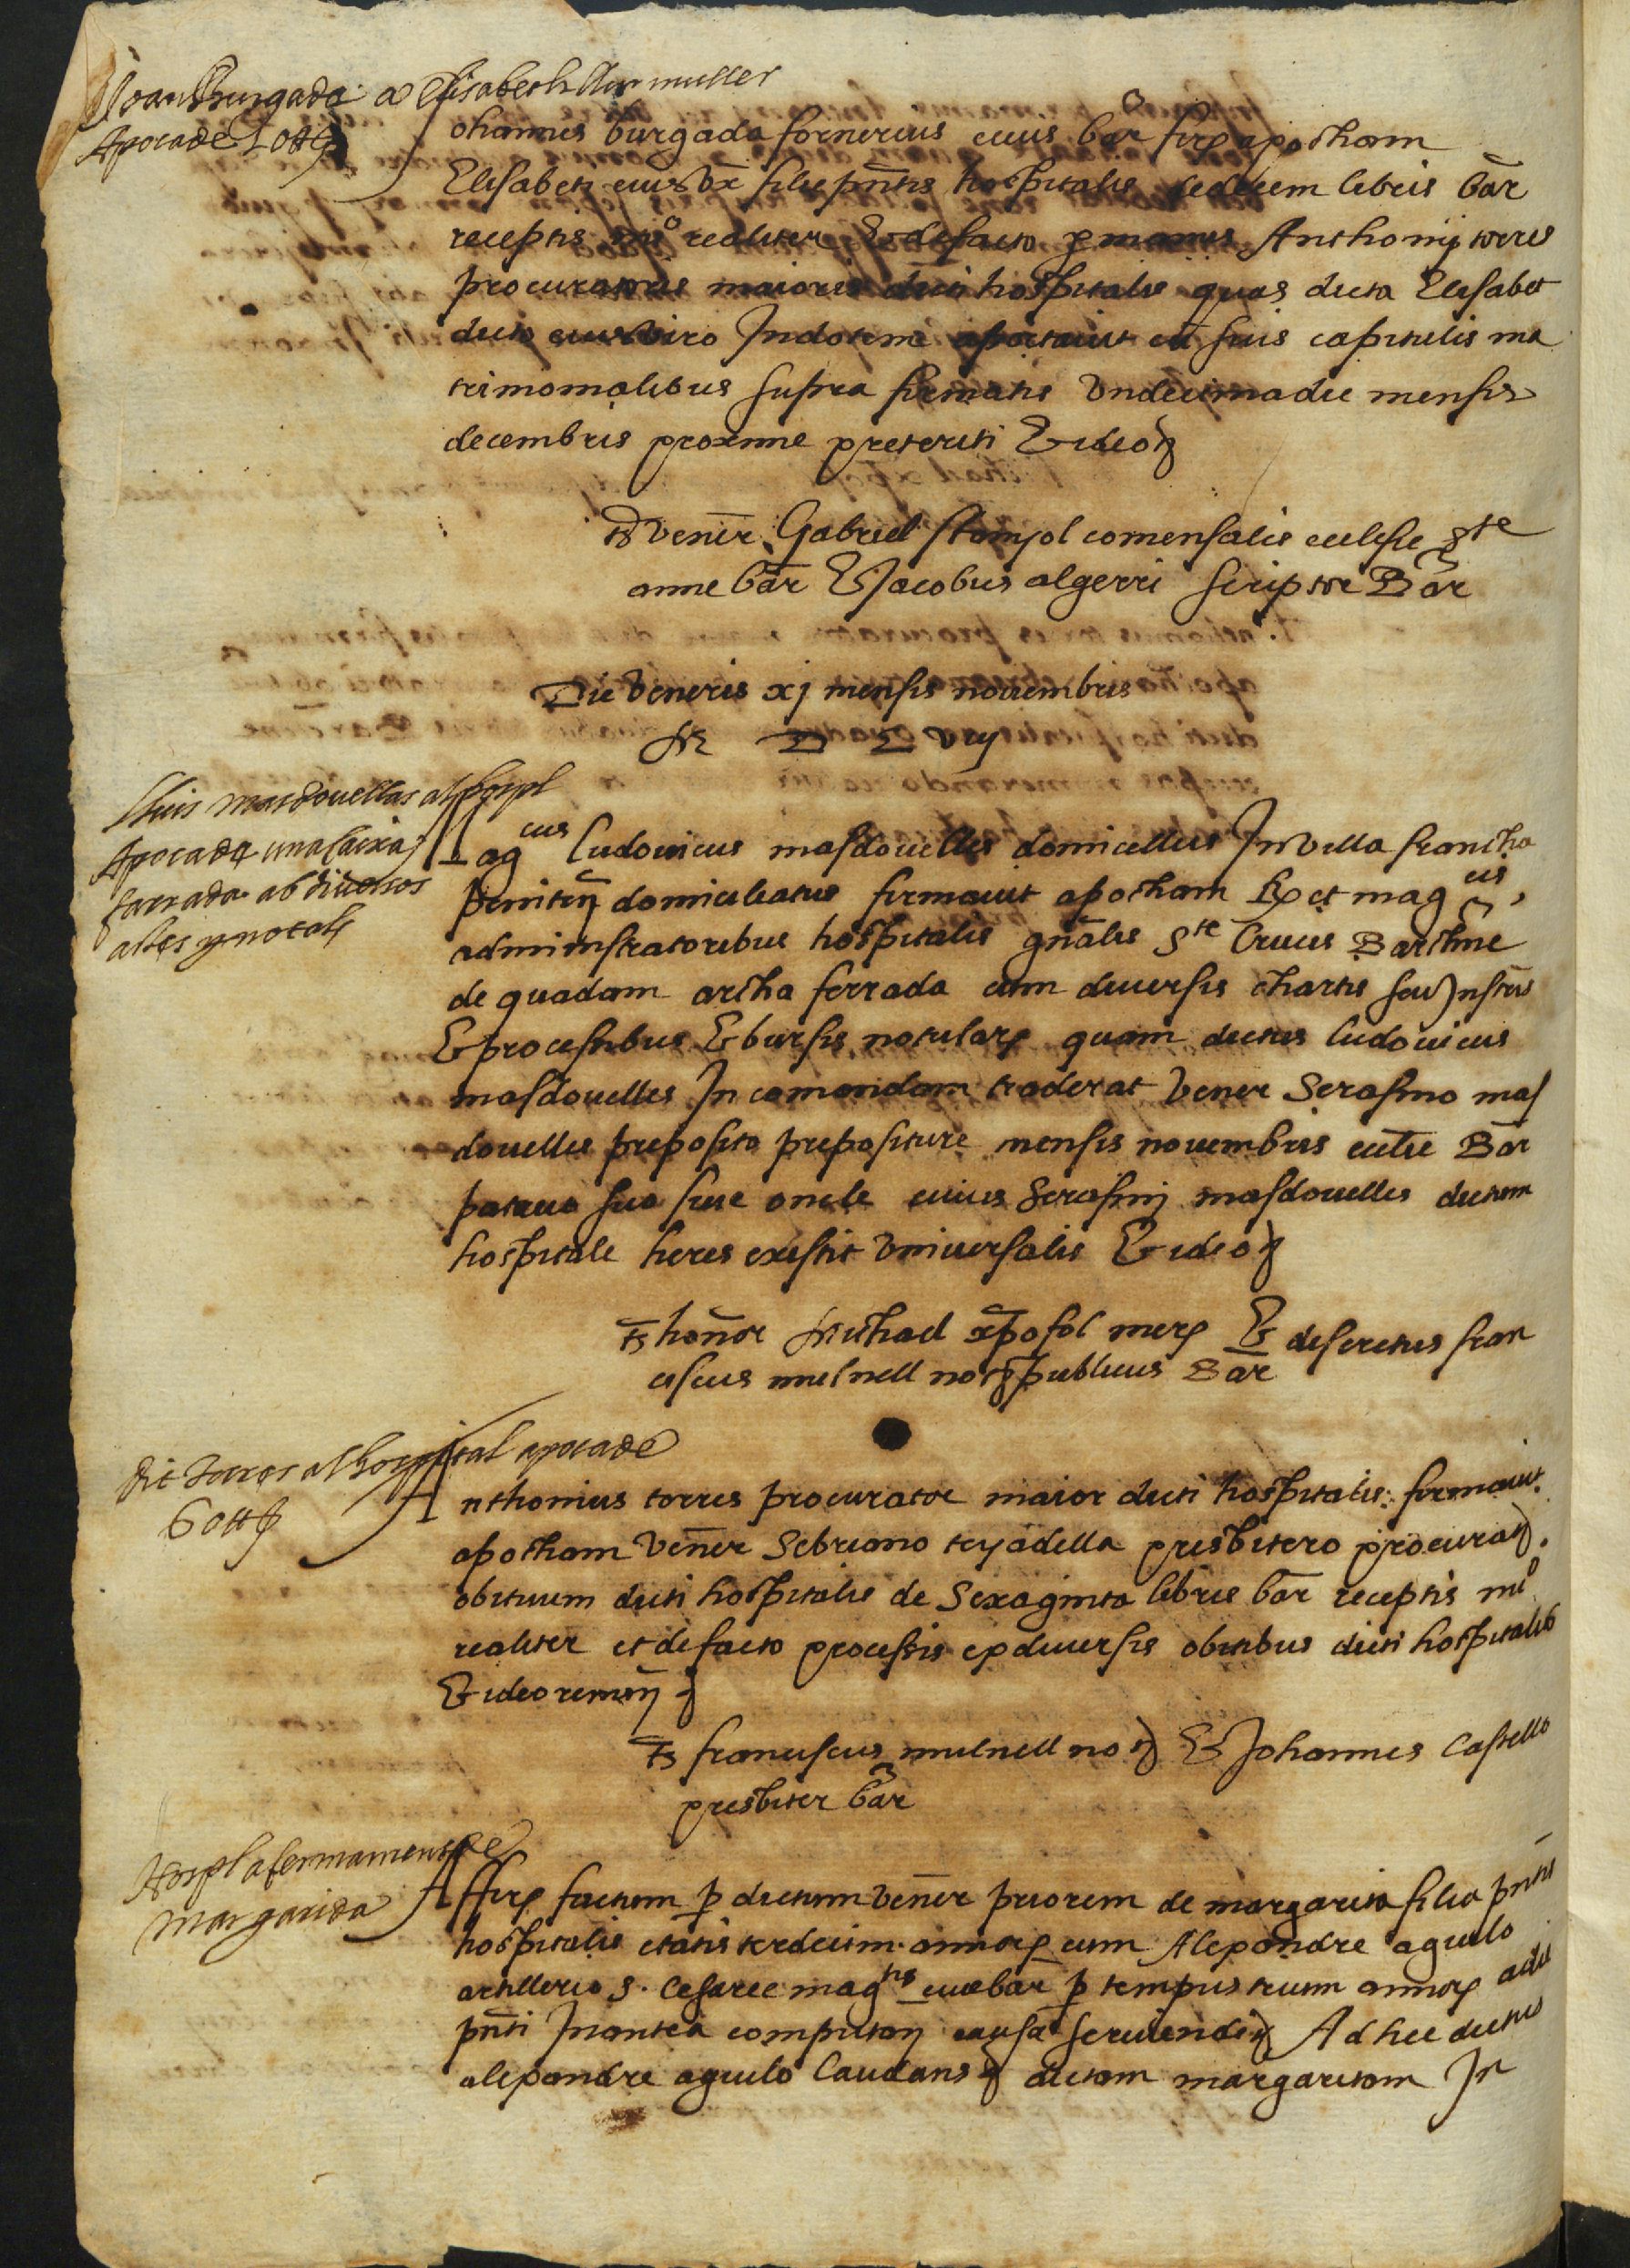 Joan Burgada a Elisabeth sa muller
Apoca de 10 ll
Johannes burgada fornerius civis bar firmavit apocham
Elisabeti eius ux filie pntis hospitalis de decem libris bar
receptis mo realiter & de facto p manus Anthonij torres
procuratoris maioris dicti hospitalis quas dicta Elisabet
dicto eius viro In dotem aportavit cu suis capitulis ma
trimonialibus supra firmatis Undecima die mensis
decembris proxime preteriti & ideo
ts vener Gabriel stanyol comensalis ecclesie Ste
anne bar & Jacobus algerri scriptor Bar
Die Veneris xj mensis novembris
M D L viij
Lluis masdovellas al hospl
Apoca de una caixa
farrada ab diversos
actes y notals
Magcus Ludovicus masdovelles domicellus In villa francha
peniten domiciliatus firmavit apocham Rx et magcis
administratoribus hospitalis gnalis Ste Crucis Barchne
de quadam archa ferrada cum diversis chartis seu Instris
& processibus & bursis notulary quam dictus Ludovicus
masdovelles In comandam tradexat Vener Serafino mas
dovelles preposito prepositure mensis novembris eccle Bar
patruo suo sive oncle cuius Serafinj masdovelles dictum
hospitale heres existit Universalis & ideo
ts honor Michael xpofol merx & discretus fran
ciscus mulnell not publicus Bar
Dit Torres al hospital apoca de
60 ll
Anthonius torres procurator maior dicti hospitalis firmavit
apocham vener Sebriano teyadella presbitero procurat
obituum dicti hospitalis de Sexaginta libris bar receptis mo
realiter et de facto processis ex diversis obitibus dicti hospitalis
& ideo renun
ts franciscus mulnell not & Johannes Castello
presbiter bar
Hospl afermament de
Margarida
Affir factum p dictum vener priorem de margarita filia pntis
hospitalis etatis terdecim annor cum Alexandre agullo
artillerio S. Cesaree magtis cive bar p tempus trium annor a die
pnti Inantea computan causa serviendi Ad hec dictus
alexandre agullo Laudans dictam margaritam In